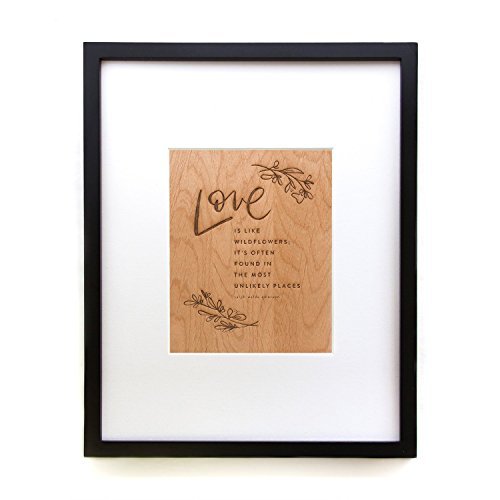 Love
IS LIKE
WILDFLOWERS;
IT'S OFTEN
FOUND IN
THE MOST
UNLIKELY PLACES